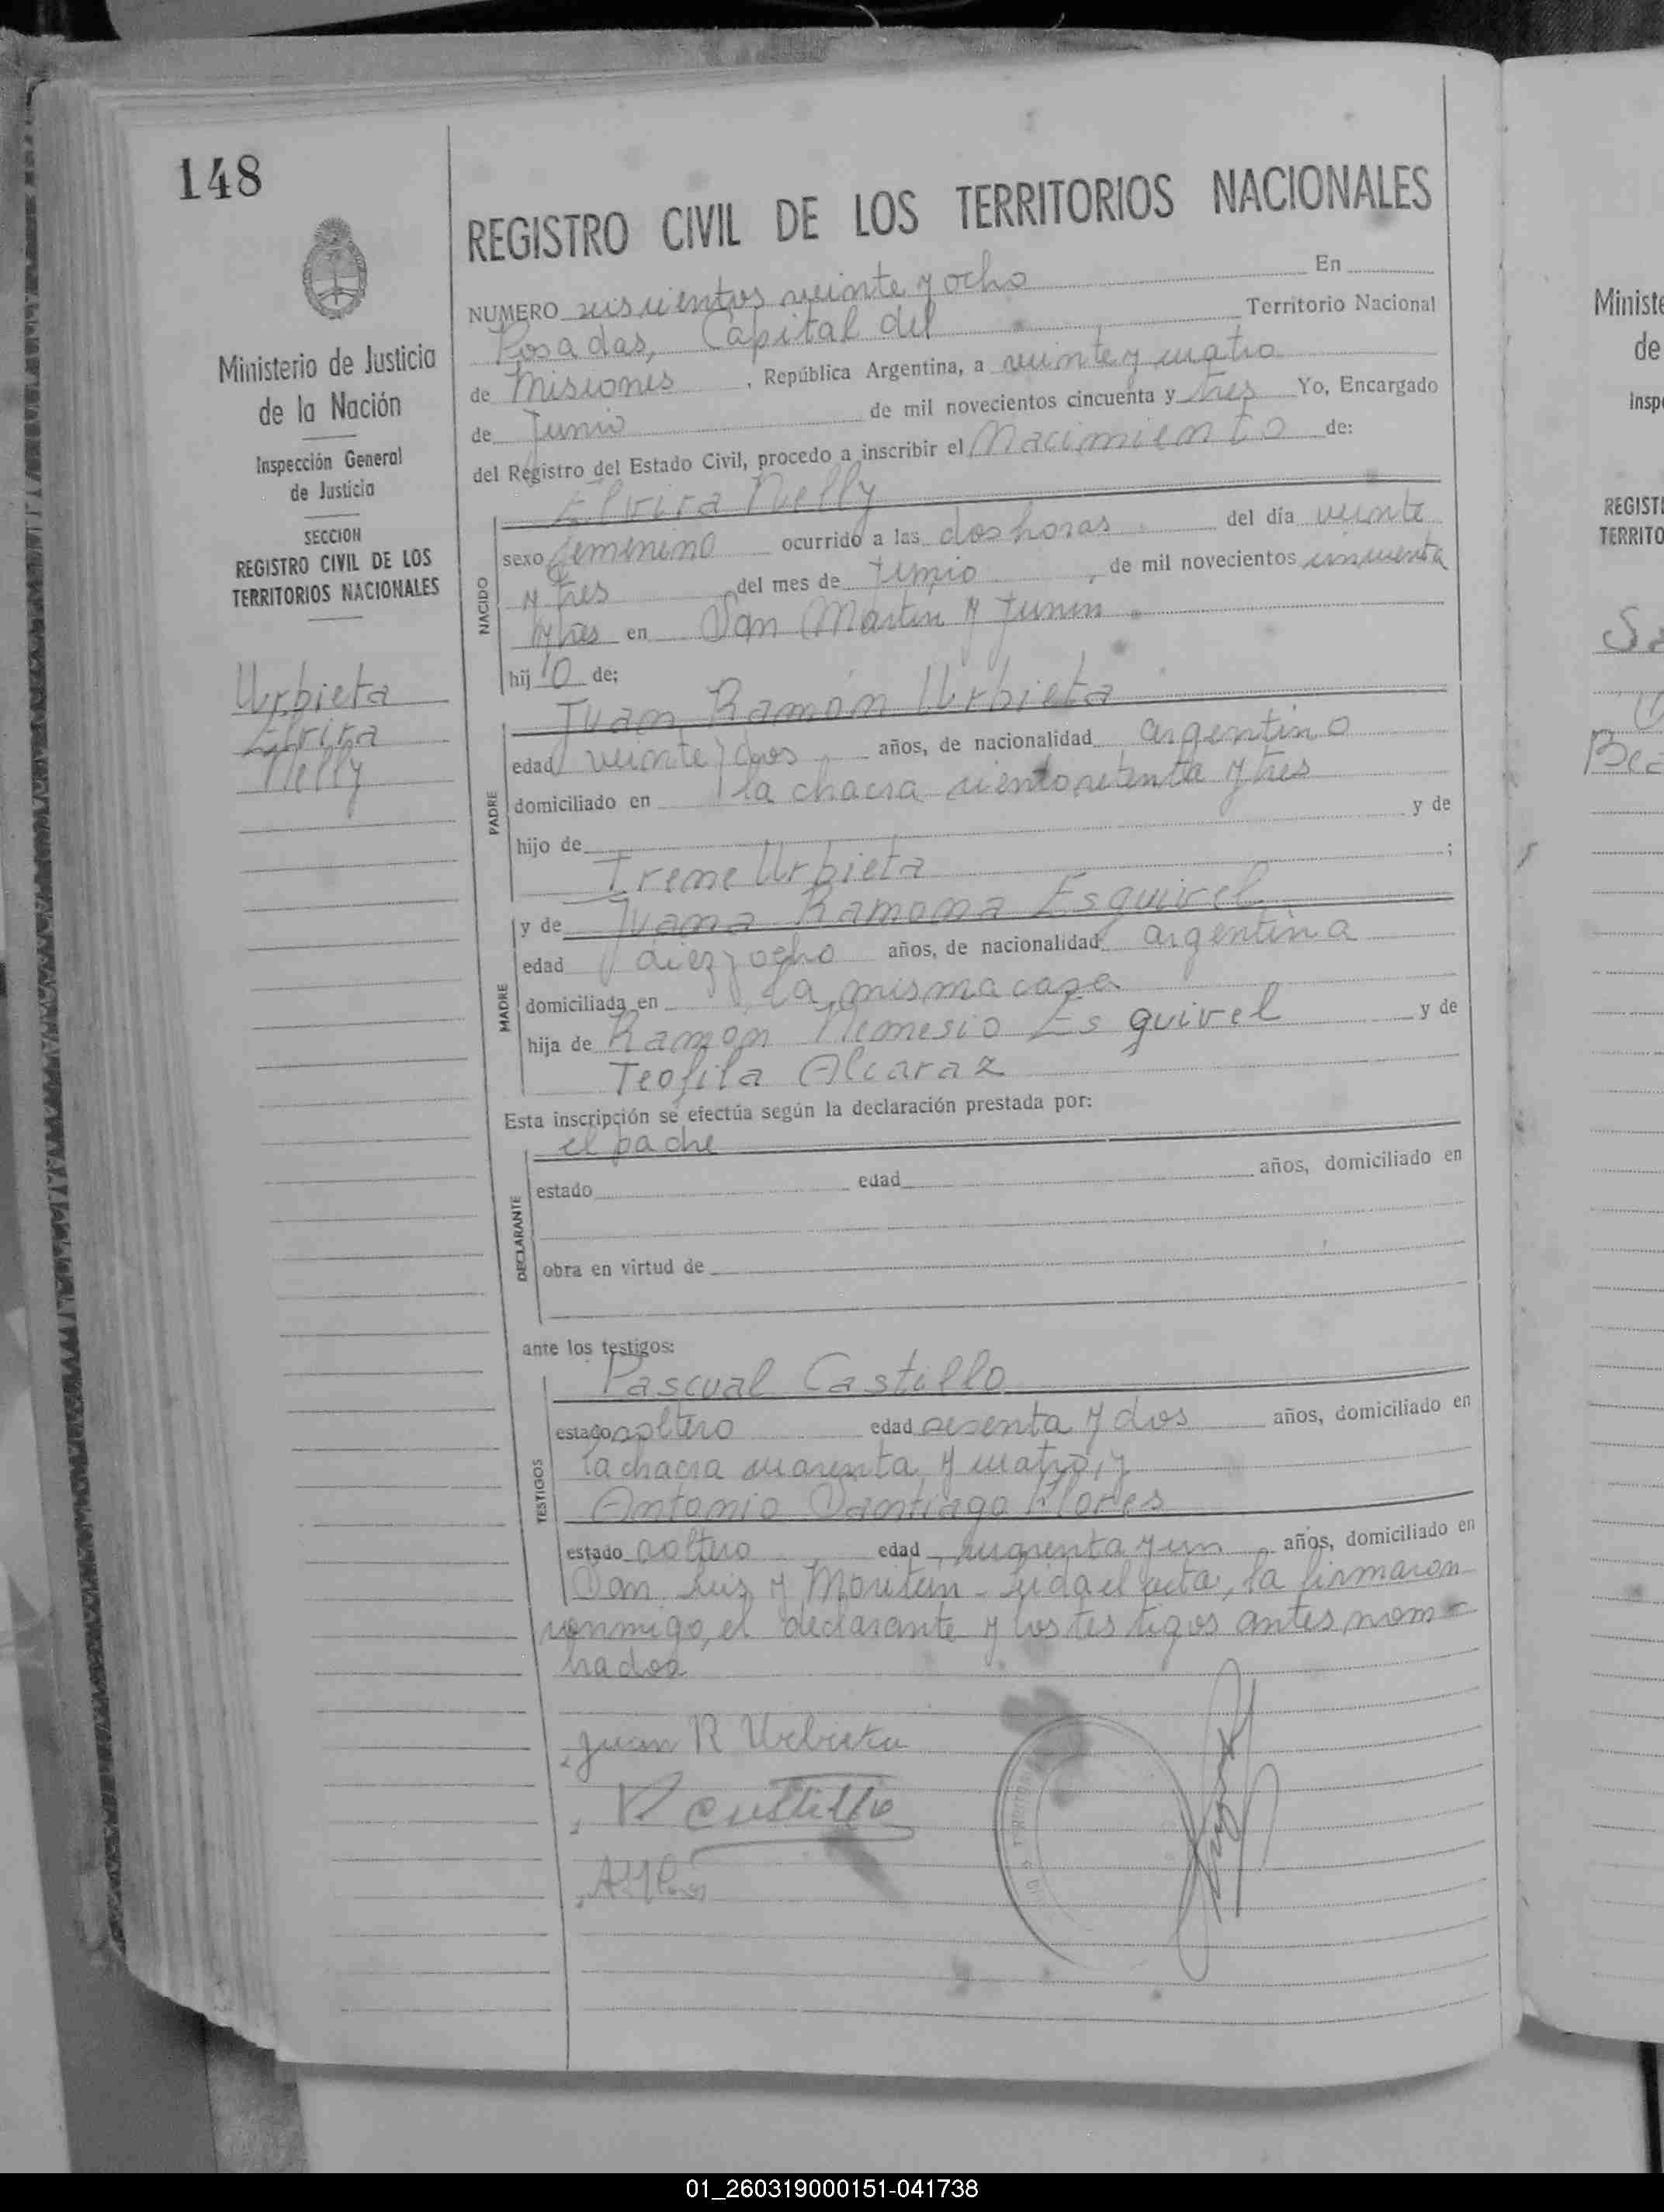 148
REGISTRO CIVIL DE LOS TERRITORIOS NACIONALES
Ministerio de Justicia
de la Nación
Inspección General
de Justicia
SECCION
REGISTRO CIVIL DE LOS
TERRITORIOS NACIONALES
Urbieta
Elvira
Nelly
NUMERO seiscientos veinte y ocho En
Posadas, Capital del Territorio Nacional
de Misiones, República Argentina, a veinte y cuatro
de Junio de mil novecientos cincuenta y tres Yo, Encargado
del Registro del Estado Civil, procedo a inscribir el Nacimiento de:
NACIDO
Elvira Nelly
sexo femenino ocurrido a las dos horas del día veinte
y tres del mes de Junio, de mil novecientos cincuenta
y tres en San Martin y Junin
hij o de;
PADRE
Juan Ramón Urbieta
edad veinte y dos años, de nacionalidad argentino
domiciliado en la chacra ciento setenta y tres
hijo de y de
Irene Urbieta ;
MADRE
y de Juana Ramona Esquivel
edad diez y ocho años, de nacionalidad argentina
domiciliada en la misma casa
hija de Ramon Nemesio Esquivel y de
Teofila Alcaraz
Esta inscripción se efectúa según la declaración prestada por:
DECLARANTE
el padre
estado edad años, domiciliado en
obra en virtud de
ante los testigos:
TESTIGOS
Pascual Castillo
estado soltero edad sesenta y dos años, domiciliado en
la chacra cuarenta y cuatro, y
Antonio Santiago Flores
estado soltero edad cuarenta y un años, domiciliado en
San Luis y - Leida el acta, la firmaron
conmigo, el declarante y los testigos antes nom-
brados
Juan R Urbieta
P Castillo
Ministe
de
Inspe
REGISTI
TERRITO
01_260319000151-041738